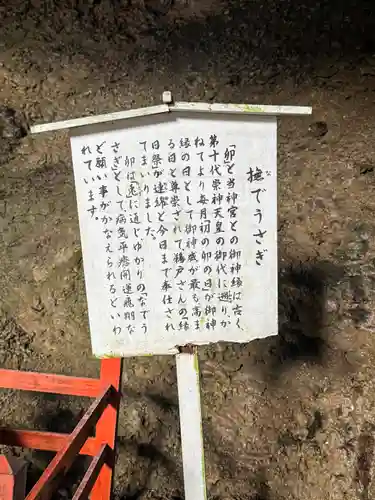 撫でうさぎ
な
「卯」と当神宮との御神縁は古く、
第十代崇神天皇の御代に遡り、か
ねてより毎月初の卯の日が御神
縁の日として御神威が最も高ま
る日と尊崇されて、鵜戸さんの縁
日祭が連綿と今日まで奉仕され
てまいりました。
卯は兎に通じゆかりの「なでう
さぎ」として、病気平癒・開運・飛翔な
ど願い事がかなえられるといわ
れています。